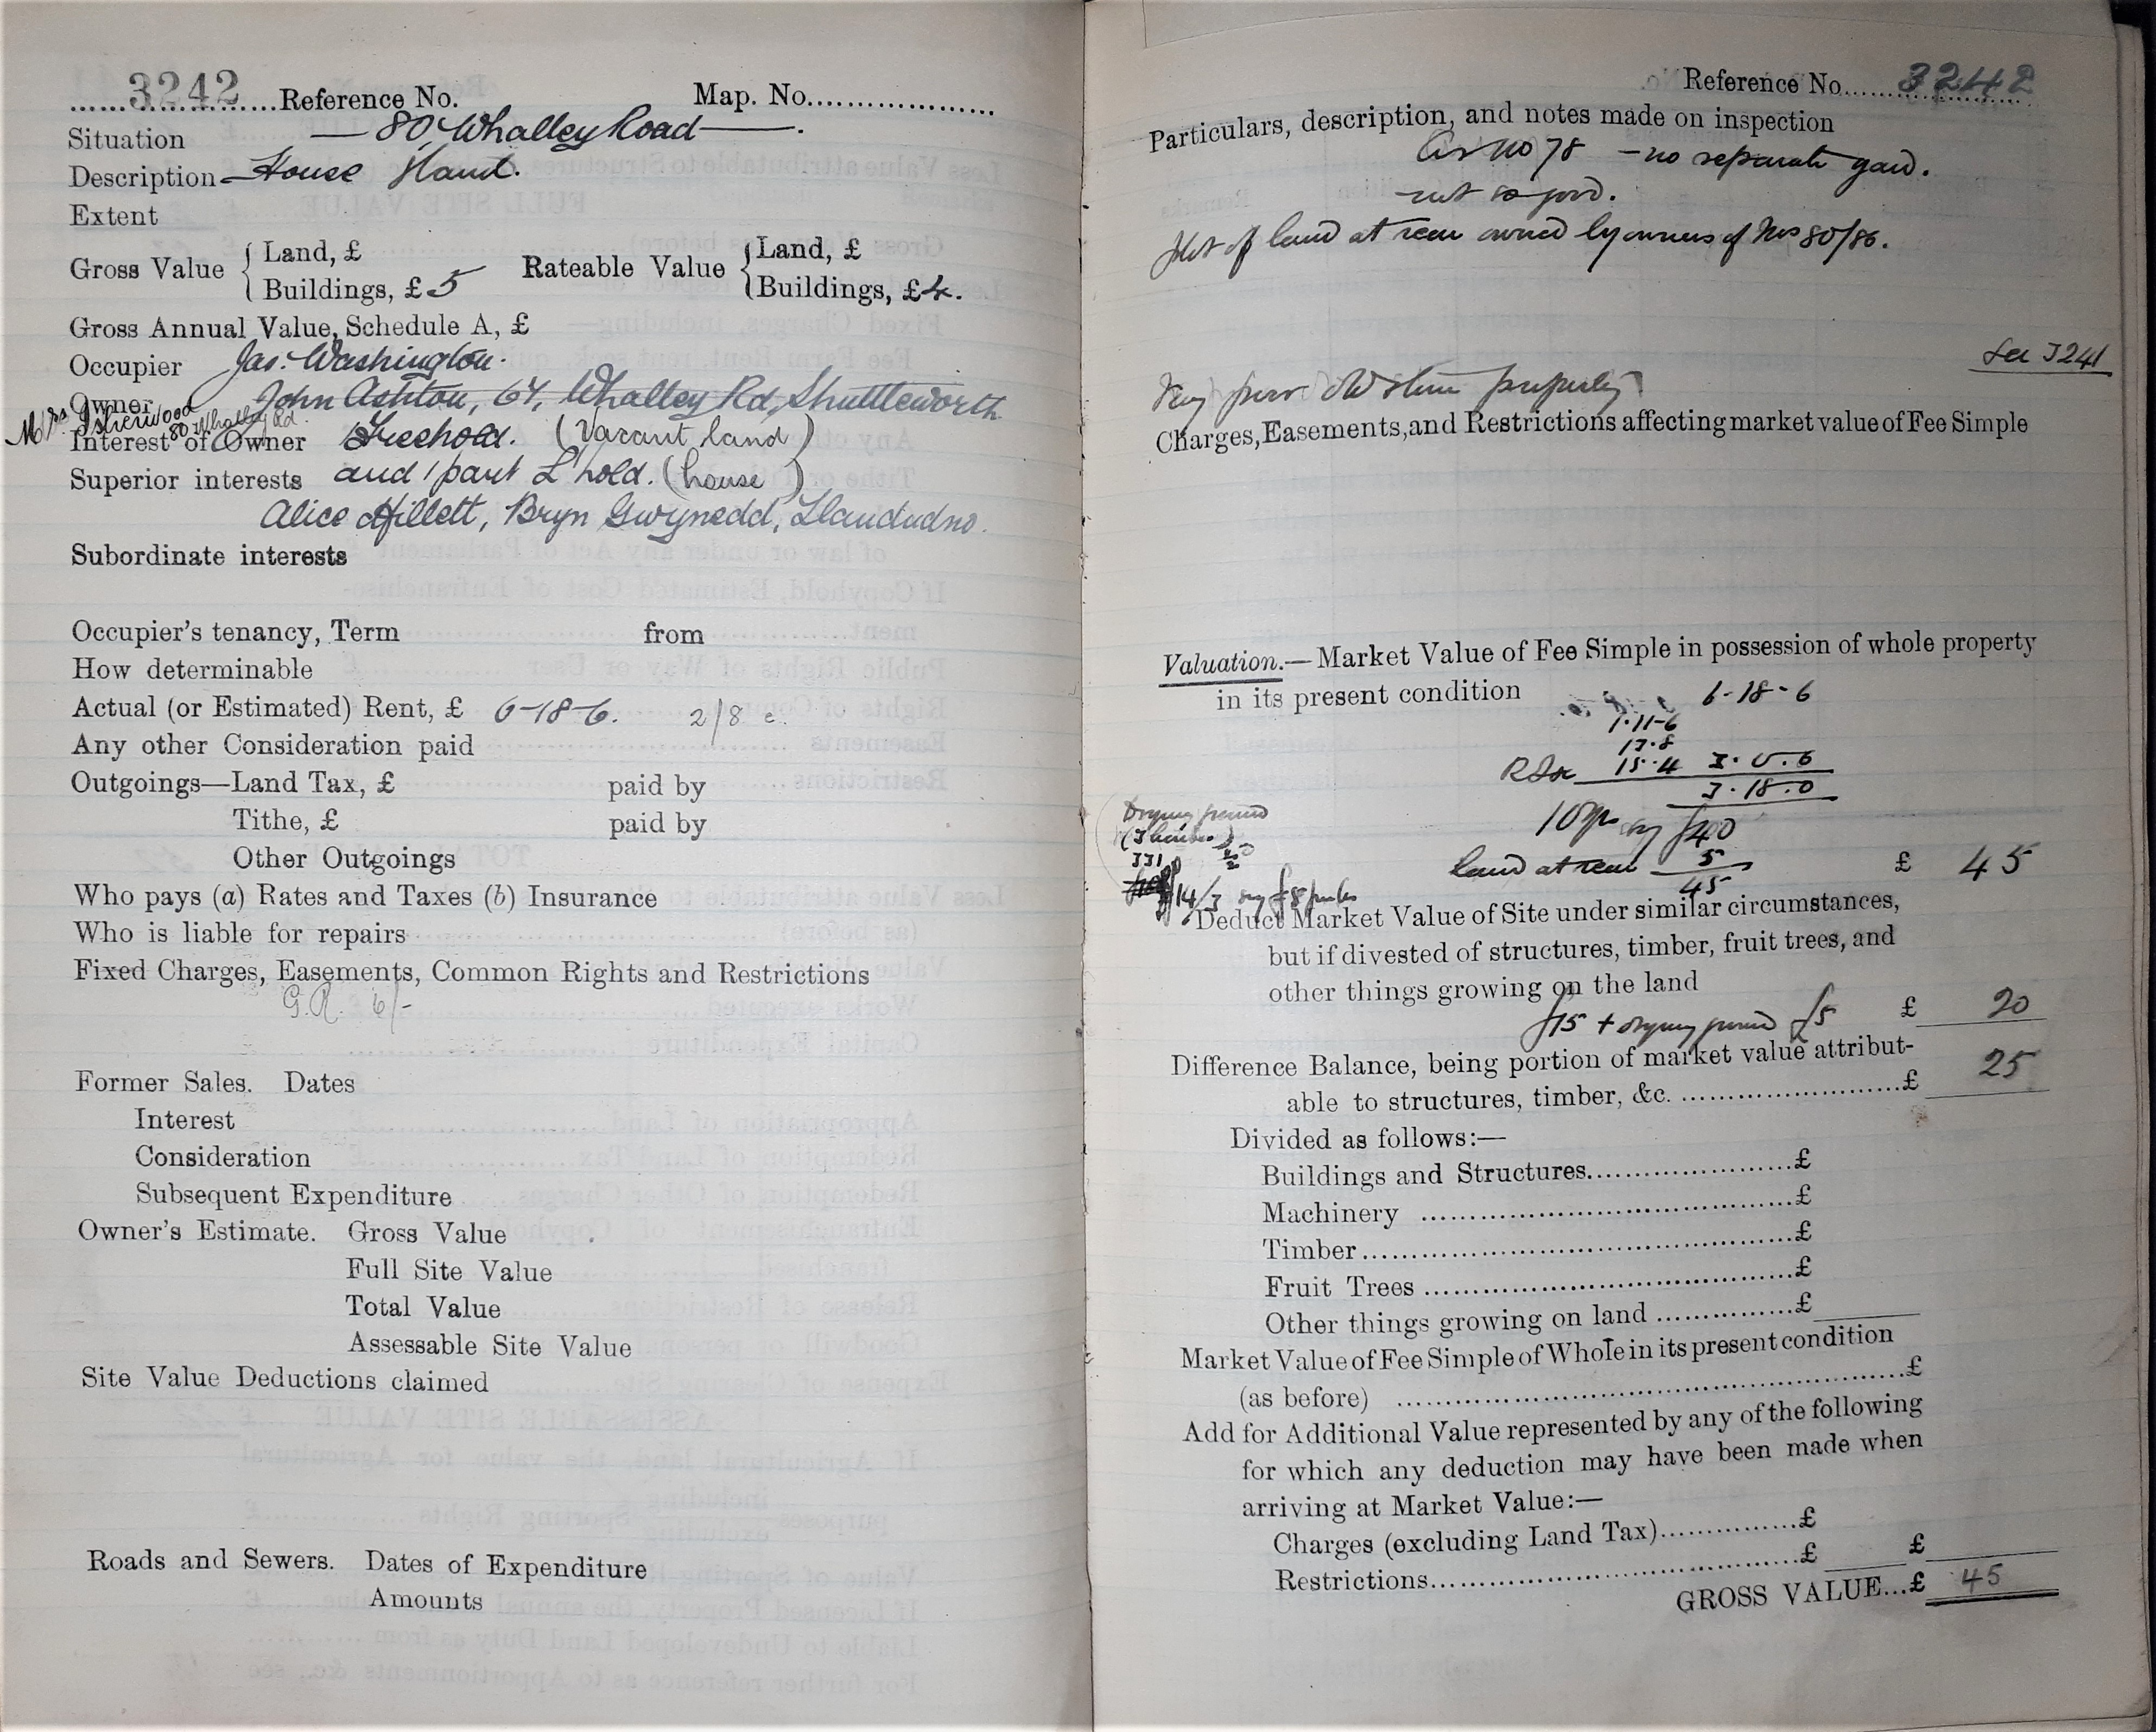 3242 Reference No. Map. No.
Situation — 80, Whalley Road —.
Description — House & land.
Extent
Gross Value { Land, £ Rateable Value { Land, £
Buildings, £ 5 Buildings, £ 4.
Gross Annual Value, Schedule A, £
Occupier Jas. Washington.
Owner John Ashton, 64, Whalley Rd, Shuttleworth
Mrs Isherwood 80 Whalley Rd
Interest of Owner Freehold. (Vacant land)
Superior interests and 1 part L'hold. (house)
Alice Hillett, Bryn Gwynedd, Llandudno.
Subordinate interests
Occupier's tenancy, Term from
How determinable
Actual (or Estimated) Rent, £ 6-18-6. 2/8 c.
Any other Consideration paid
Outgoings—Land Tax, £ paid by
Tithe, £ paid by
Other Outgoings
Who pays (a) Rates and Taxes (b) Insurance
Who is liable for repairs
Fixed Charges, Easements, Common Rights and Restrictions
G.R. 6/-
Former Sales. Dates
Interest
Consideration
Subsequent Expenditure
Owner's Estimate. Gross Value
Full Site Value
Total Value
Assessable Site Value
Site Value Deductions claimed
Roads and Sewers. Dates of Expenditure
Amounts
Reference No. 3242
Particulars, description, and notes made on inspection
As no 78 – no separate yard.
not so good.
Plot of land at rear owned by owners of Nos 80/86.
See 3241
Very poor old stone property
Charges, Easements, and Restrictions affecting market value of Fee Simple
Valuation.—Market Value of Fee Simple in possession of whole property
in its present condition 6-18-6
1-11-6
13.8
15.4 3.0.6
3.18.0
10 yp say £40
land at rear 5 £ 45
45
Drying ground
331
14/3 say £8
Deduct Market Value of Site under similar circumstances,
but if divested of structures, timber, fruit trees, and
other things growing on the land
£15 + drying ground £5 £ 20
Difference Balance, being portion of market value attribut-
able to structures, timber, &c. £ 25
Divided as follows:—
Buildings and Structures £
Machinery £
Timber £
Fruit Trees £
Other things growing on land £
Market Value of Fee Simple of Whole in its present condition
(as before) £
Add for Additional Value represented by any of the following
for which any deduction may have been made when
arriving at Market Value:—
Charges (excluding Land Tax) £
Restrictions £ £
GROSS VALUE...£ 45